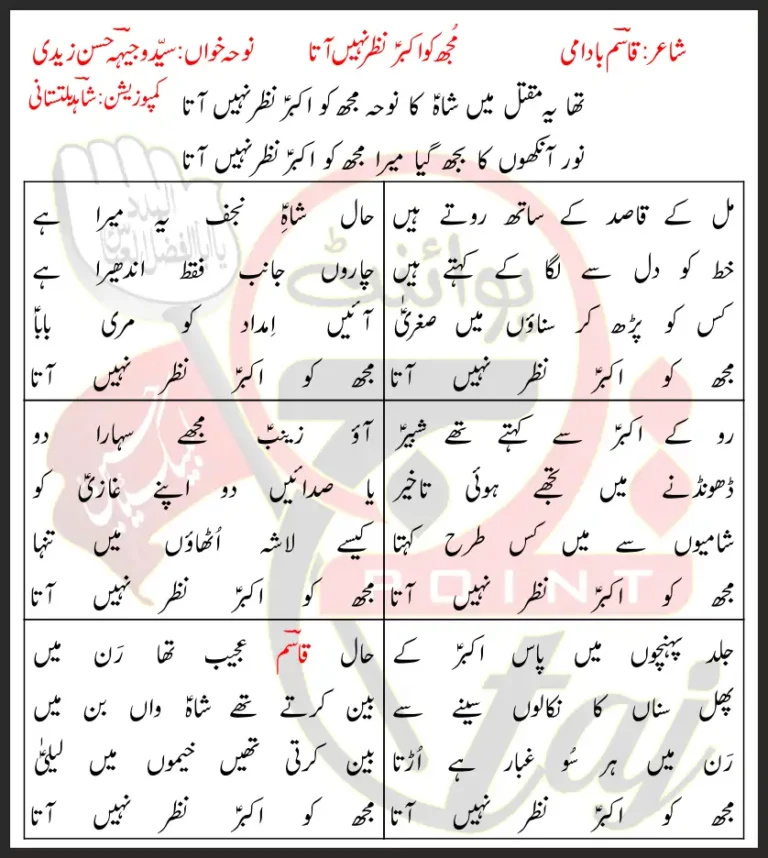 شاعر: قاسمؔ بادامی
مُجھ کو اکبرؑ نظر نہیں آتا
نوحہ خواں: سیّد وجیہہ حسن زیدی
کمپوزیشن: شاہدؔ بلتستانی
تھا یہ مقتل میں شاہؑ کا نوحہ مجھ کو اکبرؑ نظر نہیں آتا
نور آنکھوں کا بجھ گیا میرا مجھ کو اکبرؑ نظر نہیں آتا
مل کے قاصد کے ساتھ روتے ہیں
خط کو دل سے لگا کے کہتے ہیں
کس کو پڑھ کر سناؤں میں صغریٰؑ
مجھ کو اکبرؑ نظر نہیں آتا
حال شاہِؑ نجف یہ میرا ہے
چاروں جانب فقط اندھیرا ہے
آئیں اِمداد کو مری باباؑ
مجھ کو اکبرؑ نظر نہیں آتا
رو کے اکبرؑ سے کہتے تھے شبیرؑ
ڈھونڈنے میں تجھے ہوئی تاخیر
شامیوں سے میں کس طرح کہتا
مجھ کو اکبرؑ نظر نہیں آتا
آؤ زینبؑ مجھے سہارا دو
یا صدائیں دو اپنے غازیؑ کو
کیسے لاشہ اُٹھاؤں میں تنہا
مجھ کو اکبرؑ نظر نہیں آتا
جلد پہنچوں میں پاس اکبرؑ کے
پھل سناں کا نکالوں سینے سے
رَن میں ہر سُو غبار ہے اُڑتا
مجھ کو اکبرؑ نظر نہیں آتا
حال قاسمؔ عجیب تھا رَن میں
بین کرتے تھے شاہؑ واں بن میں
بین کرتی تھیں خیموں میں لیلیٰؑ
مجھ کو اکبرؑ نظر نہیں آتا
پوائنٹ
POINT
taj